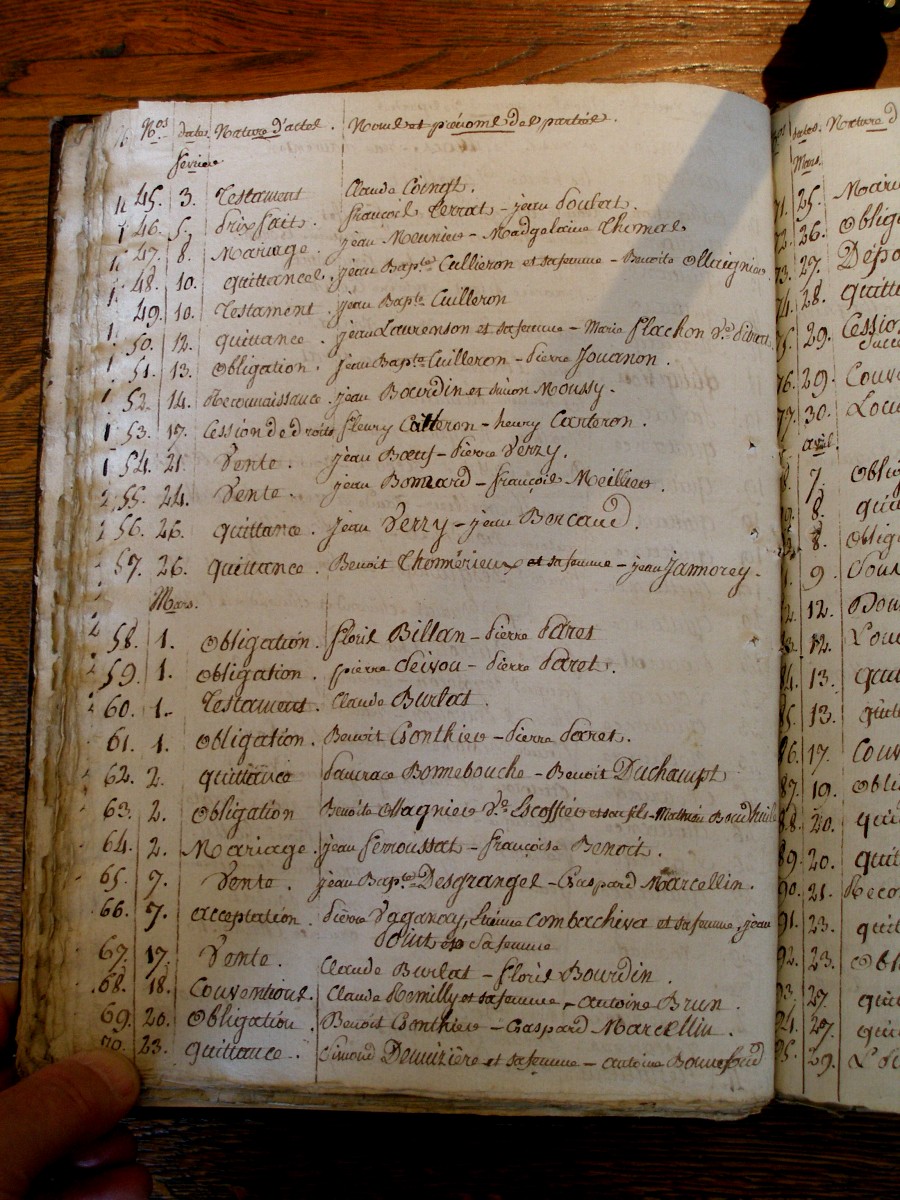 Nos dates. Nature d'actes. Noms et prénoms des parties.
février
45. 3. Testament Claude Coingt.
46. 5. Prixfait. françois Terrat - jean Poulat.
47. 8. Mariage. jean Meunier - Madgelaine Thomas
48. 10. quittances. jean Bapte. Cuilleron et sa femme - Benoite Ollagnier
49. 10. Testament. jean Bapte. Cuilleron
50. 12. quittance. jean Laurenson et sa femme - Marie flachon Ve.
51. 13. Obligation. jean Bapte. Cuilleron - Pierre Jouanon.
52. 14. Reconnaissance. jean Bourdin et simon Moussy.
53. 17. Cession de droits fleury Carteron - henry Carteron.
54. 21. Vente. jean Bœuf - Pierre Verzy.
55. 24. Vente. jean Bonnard - françois Meillier.
56. 26. quittance. jean Verzy - jean Bercaud.
57. 26. quittance. Benoit Thomérieux et sa femme - jean Jamorey.
Mars.
58. 1. Obligation. floris Billan - Pierre Paret
59. 1. obligation. pierre Seivou - Pierre Paret.
60. 1. Testament. Claude Burlat.
61. 1. Obligation. Benoit Gonthier - Pierre Paret.
62. 2. quittance Pancrace Bonnebouche - Benoit Duchampt
63. 2. Obligation Benoite Ollagnier Ve. Escoffier et ses fils - Mathieu
64. 2. Mariage. jean semoussat - françoise Benoit.
65. 7. Vente. jean Bapte. Desgranges - Gaspard Marcellin.
66. 7. acceptation. Pierre Vaganay, Etienne Combachiva et sa femme, jean
Point et sa femme
67. 17. Vente. Claude Burlat - floris Bourdin.
68. 18. Conventions. Claude Remilly et sa femme, - antoine Brun.
69. 20. Obligation. Benoit Gonthier - Gaspard Marcellin.
70. 23. quittance. Simond Demizière et sa femme - antoine Bonnefond
dates. Nature d
Mars.
25. Mari
26. Oblig
27. Dépo
28. quitt
29. Cession
29. Conv
30.
avril
7. Obli
8. qui
8. oblig
9.
12.
12.
13. qui
13. quit
17. Conv
19. obli
20. qui
20. quit
21. Reco
23. quit
23. Obl
27. qui
27. qui
29.